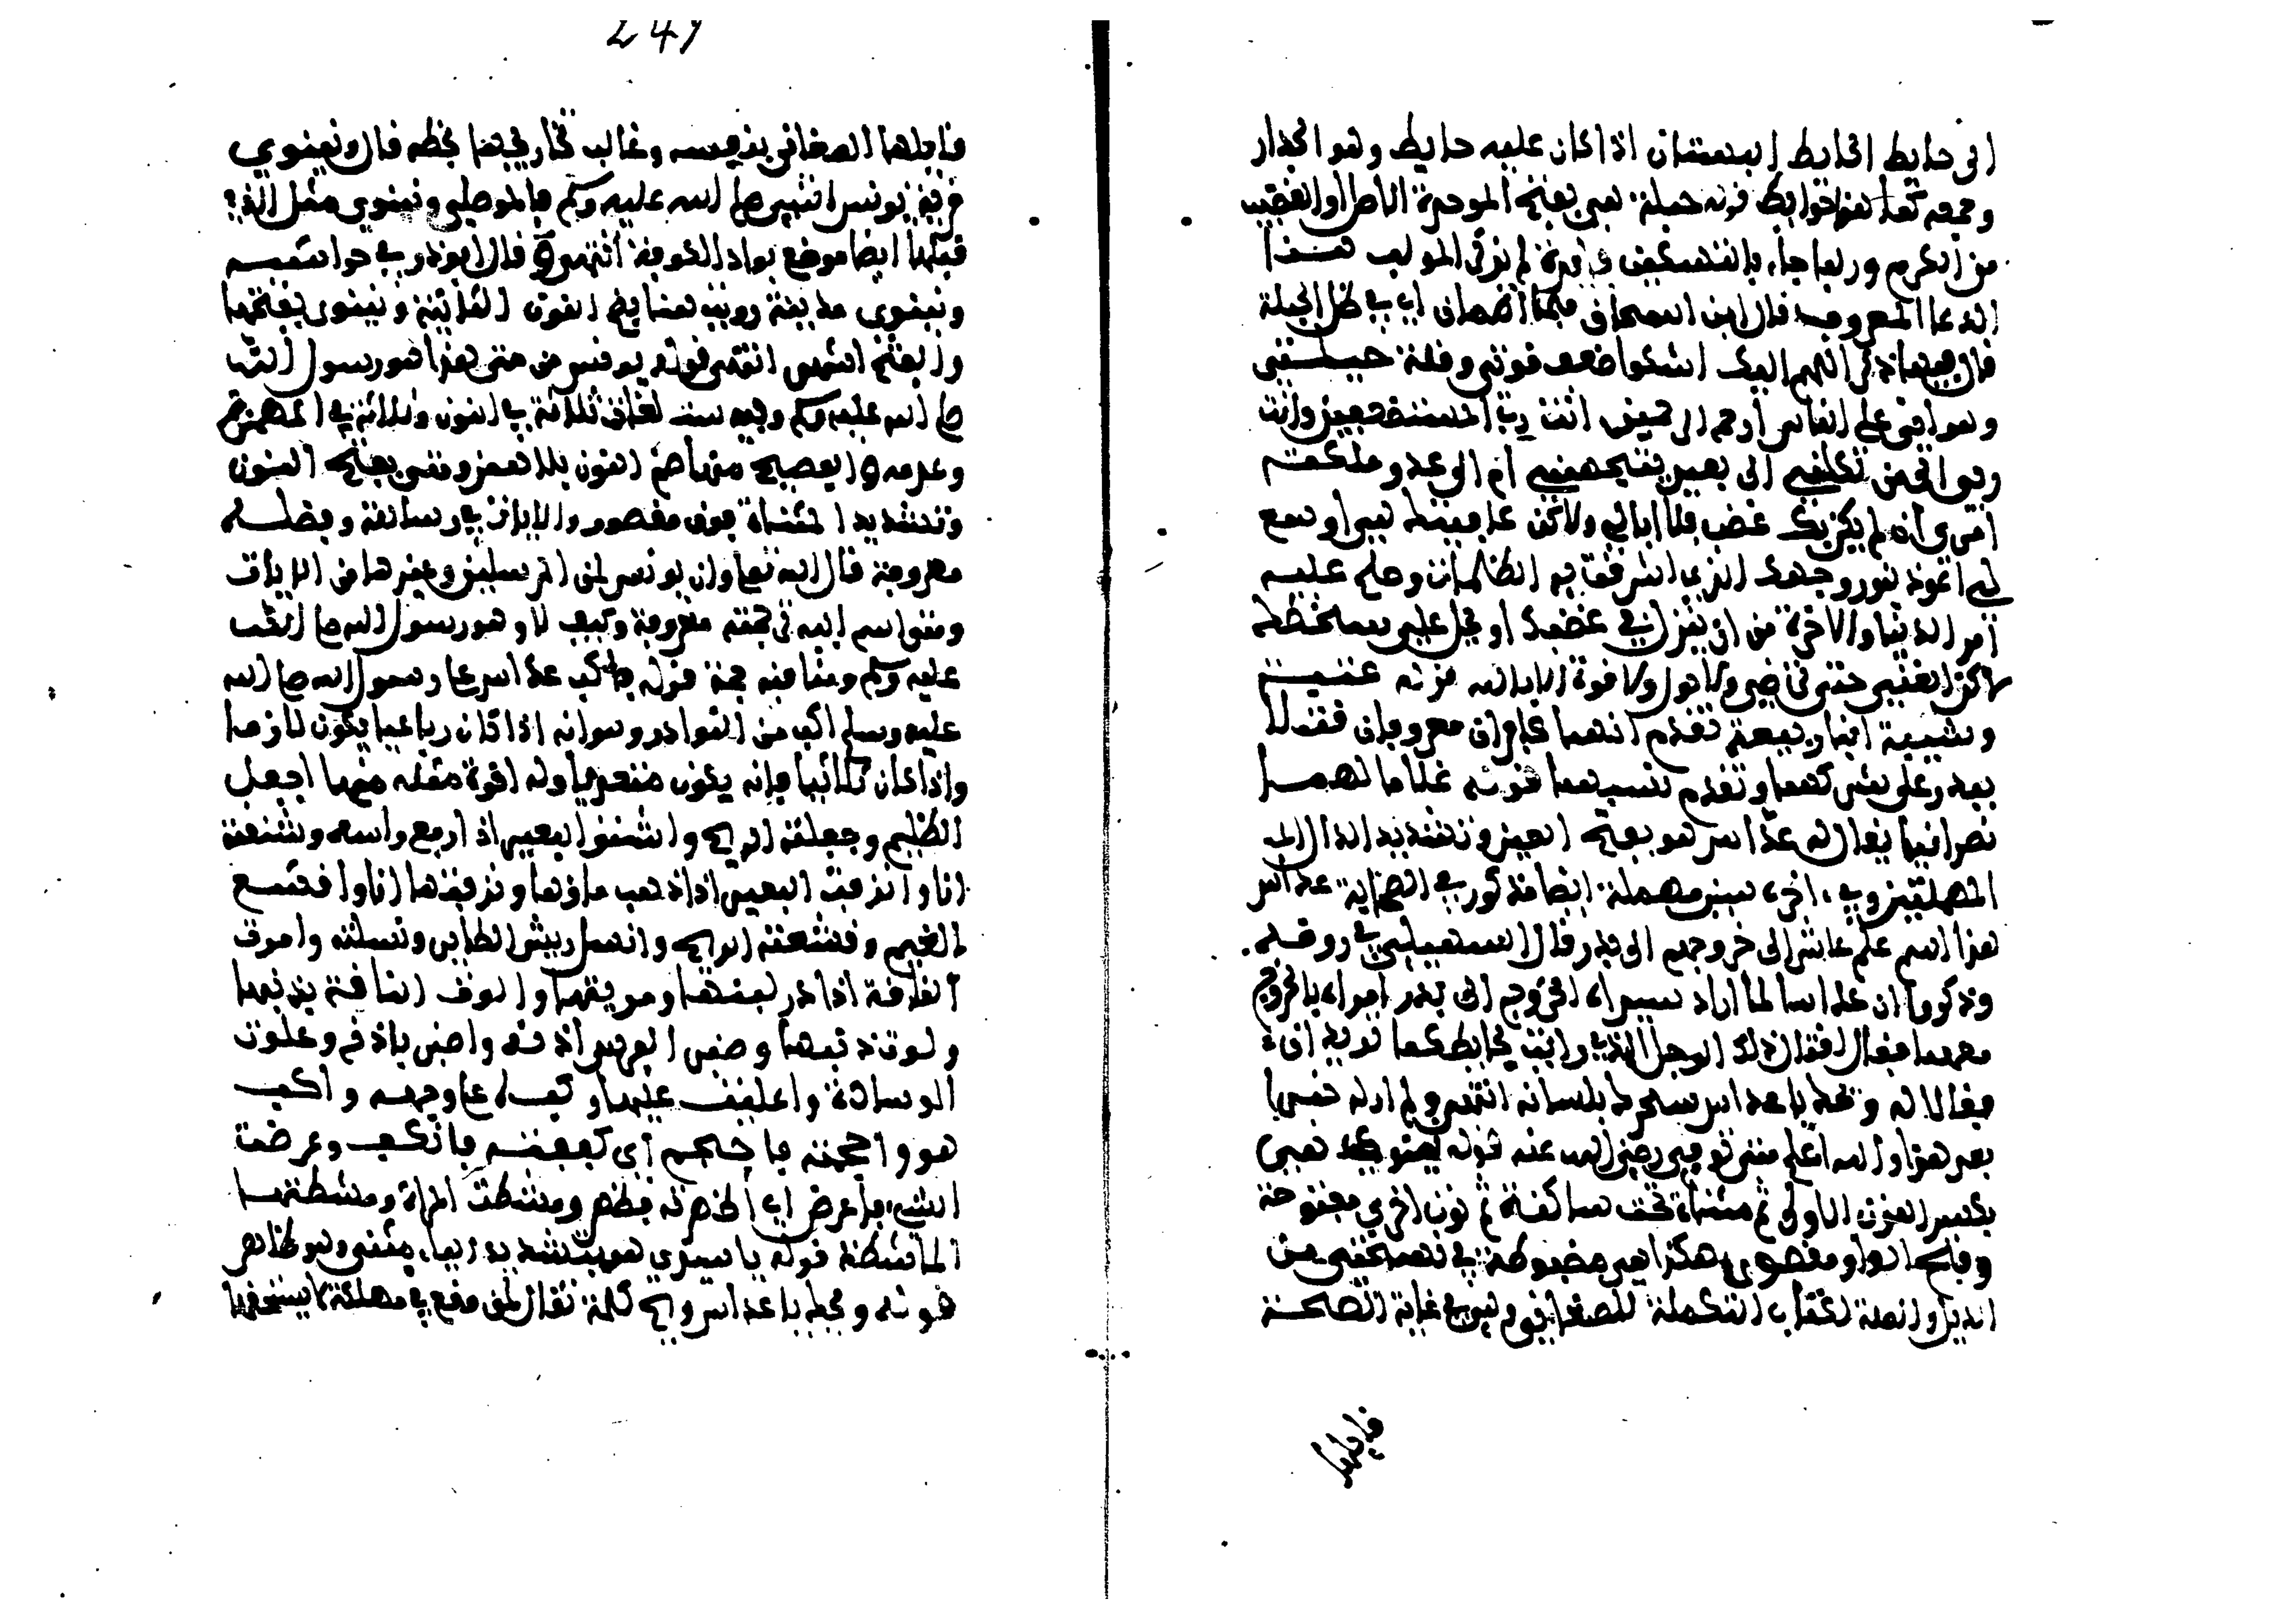 الى حايط الحايط البستان اذا كان عليه حايط وهو الجدار
وجمعه حوايط قوله حبلة هي بفتح الموحدة الاصل او القضيب
من الكرم وربما جاء بالتسكين لم يذكر المولف هنا
الدعا المعروف قال ابن اسحاق فلما اطمان اي في ظل الحبلة
قال فيما ذكر اللهم اليك اشكوا ضعف قوتي وقلة حيلتي
وهواني على الناس ارحم الراحمين انت رب المستضعفين وانت
ربي الى من تكلني الى بعيد يتجهمني ام الى عدو ملكته
امري ان لم يكن بك غضب فلا ابالي ولاكن عافيتك هي اوسع
لي اعوذ بنور وجهك الذي اشرقت به الظلمات وصلح عليه
امر الدنيا والاخرة من ان ينزل بي غضبك او يحل علي سخطك
لك العتبى حتى ترضى ولا حول ولا قوة الا بالله قوله عتبة
وشيبة ابنا ربيعة تقدم انهما كافران معروفان قتلا
ببدر على كفرهما وتقدم نسبهما قوله غلاما لهما
نصرانيا يقال له عداس هو بفتح العين وتشديد الدال
المهملتين وفي اخره سين مهملة ايضا مذكور في الصحابة عداس
هذا اسم علم عاش الى خروجهم الى بدر قال السهيلي في روضه
وذكروا ان عداسا لما اراد سيداه الخروج الى بدر امراه بالخروج
معهما فقال اقتال ذلك الرجل الذي رايت بحايطكما تريدان
فقالا له ويحك يا عداس سحرك بلسانه انتهى ولم ار له خبرا
بعد هذا والله اعلم متى توفي رضي الله عنه قوله نينوى هي
بكسر النون الاولى ثم مثناة تحت ساكنة ثم نون اخرى مفتوحة
وفتح الواو مقصور هكذا هي مضبوطة في نسختي من
الذيل والصلة لكتاب التكملة للصغاني وهي في غاية الصحة
قابلها
247
قابلها الصغاني بنفسه وغالب تخاريجها بخطه قال ونينوى
قرية يونس النبي صلى الله عليه وسلم بالموصل ونينوى مثل التي
قبلها ايضا موضع بسواد الكوفة انتهى وقال ابوذر في حواشيه
ونينوى مدينة رويت هنا بضم النون الثانية ونينوى بفتحها
والفتح اشهر انتهى قوله يونس من متى هذا هو رسول الله
صلى الله عليه وسلم وفيه ست لغات ثلاثة في النون وثلاثة في الهمز
وعدمه والفصيح منها ضم النون بلا همز ومتى بفتح
وتشديد المثناة فوق مقصور والايات في رسالته وفضله
معروفة قال الله تعالى وان يونس لمن المرسلين وغيرها من الايات
وهو رسول الله صلى الله
عليه وسلم ومناقبه جمة قوله فاكب عداس على رسول الله صلى الله
عليه وسلم اكب من النوادر وهو انه اذا كان رباعيا يكون لازما
واذا كان ثلاثيا فانه يكون متعديا وله اخوة مثله منها اجفل
الظليم وجفلته الريح واشنق البعير اذا رفع راسه وشنقته
انا وانزفت البير اذا ذهب ماؤها ونزفتها انا واقشع
الغيم وقشعته الريح وانسل ريش الطاير ونسلته وامرت
الناقة اذا در لبنها ومريتها والوت الناقة بذنبها
ولوت ذنبها وصر الفرس اذنه واصر باذنه وعلوت
الوسادة واعليت عليها وكبه الله على وجهه واكب
هو واحجمته فاحجم اي كففته فانكف وعرضت
الشيء فاعرض اي اظهرته فظهر ومشطت المراة ومشطتها
الماشطة قوله يا سيدي هو بتشديد الياء مثنى وهو ظاهر
قوله ويحك يا عداس ويح كلمة تقال لمن وقع في مهلكة لا يستحقها